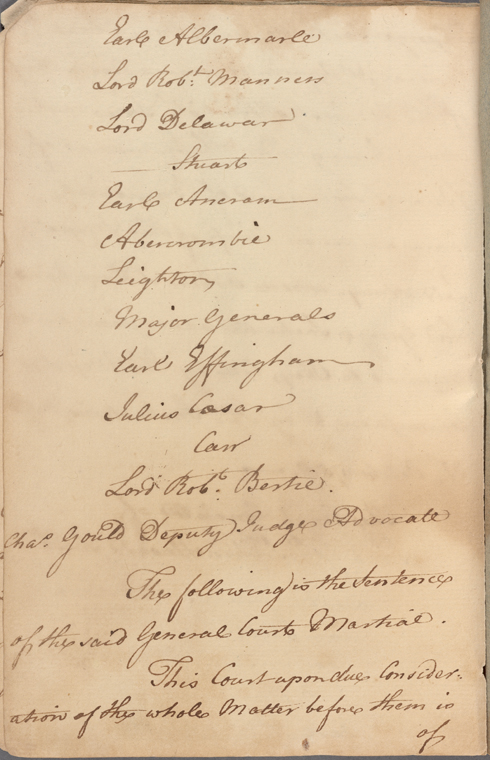 Earl Albermarle
Lord Rob.t Manners
Lord Delawar
— Stuart
Earl Ancram
Abercrombie
Leighton
Major Generals
Earl Effingham
Julius Cæsar
Carr
Lord Rob.t Bertie.
Cha.s Gould Deputy Judge Advocate
The following is the Sentence
of the said General Court Martial.
This Court upon due Consider-
ation of the whole Matter before them is
of